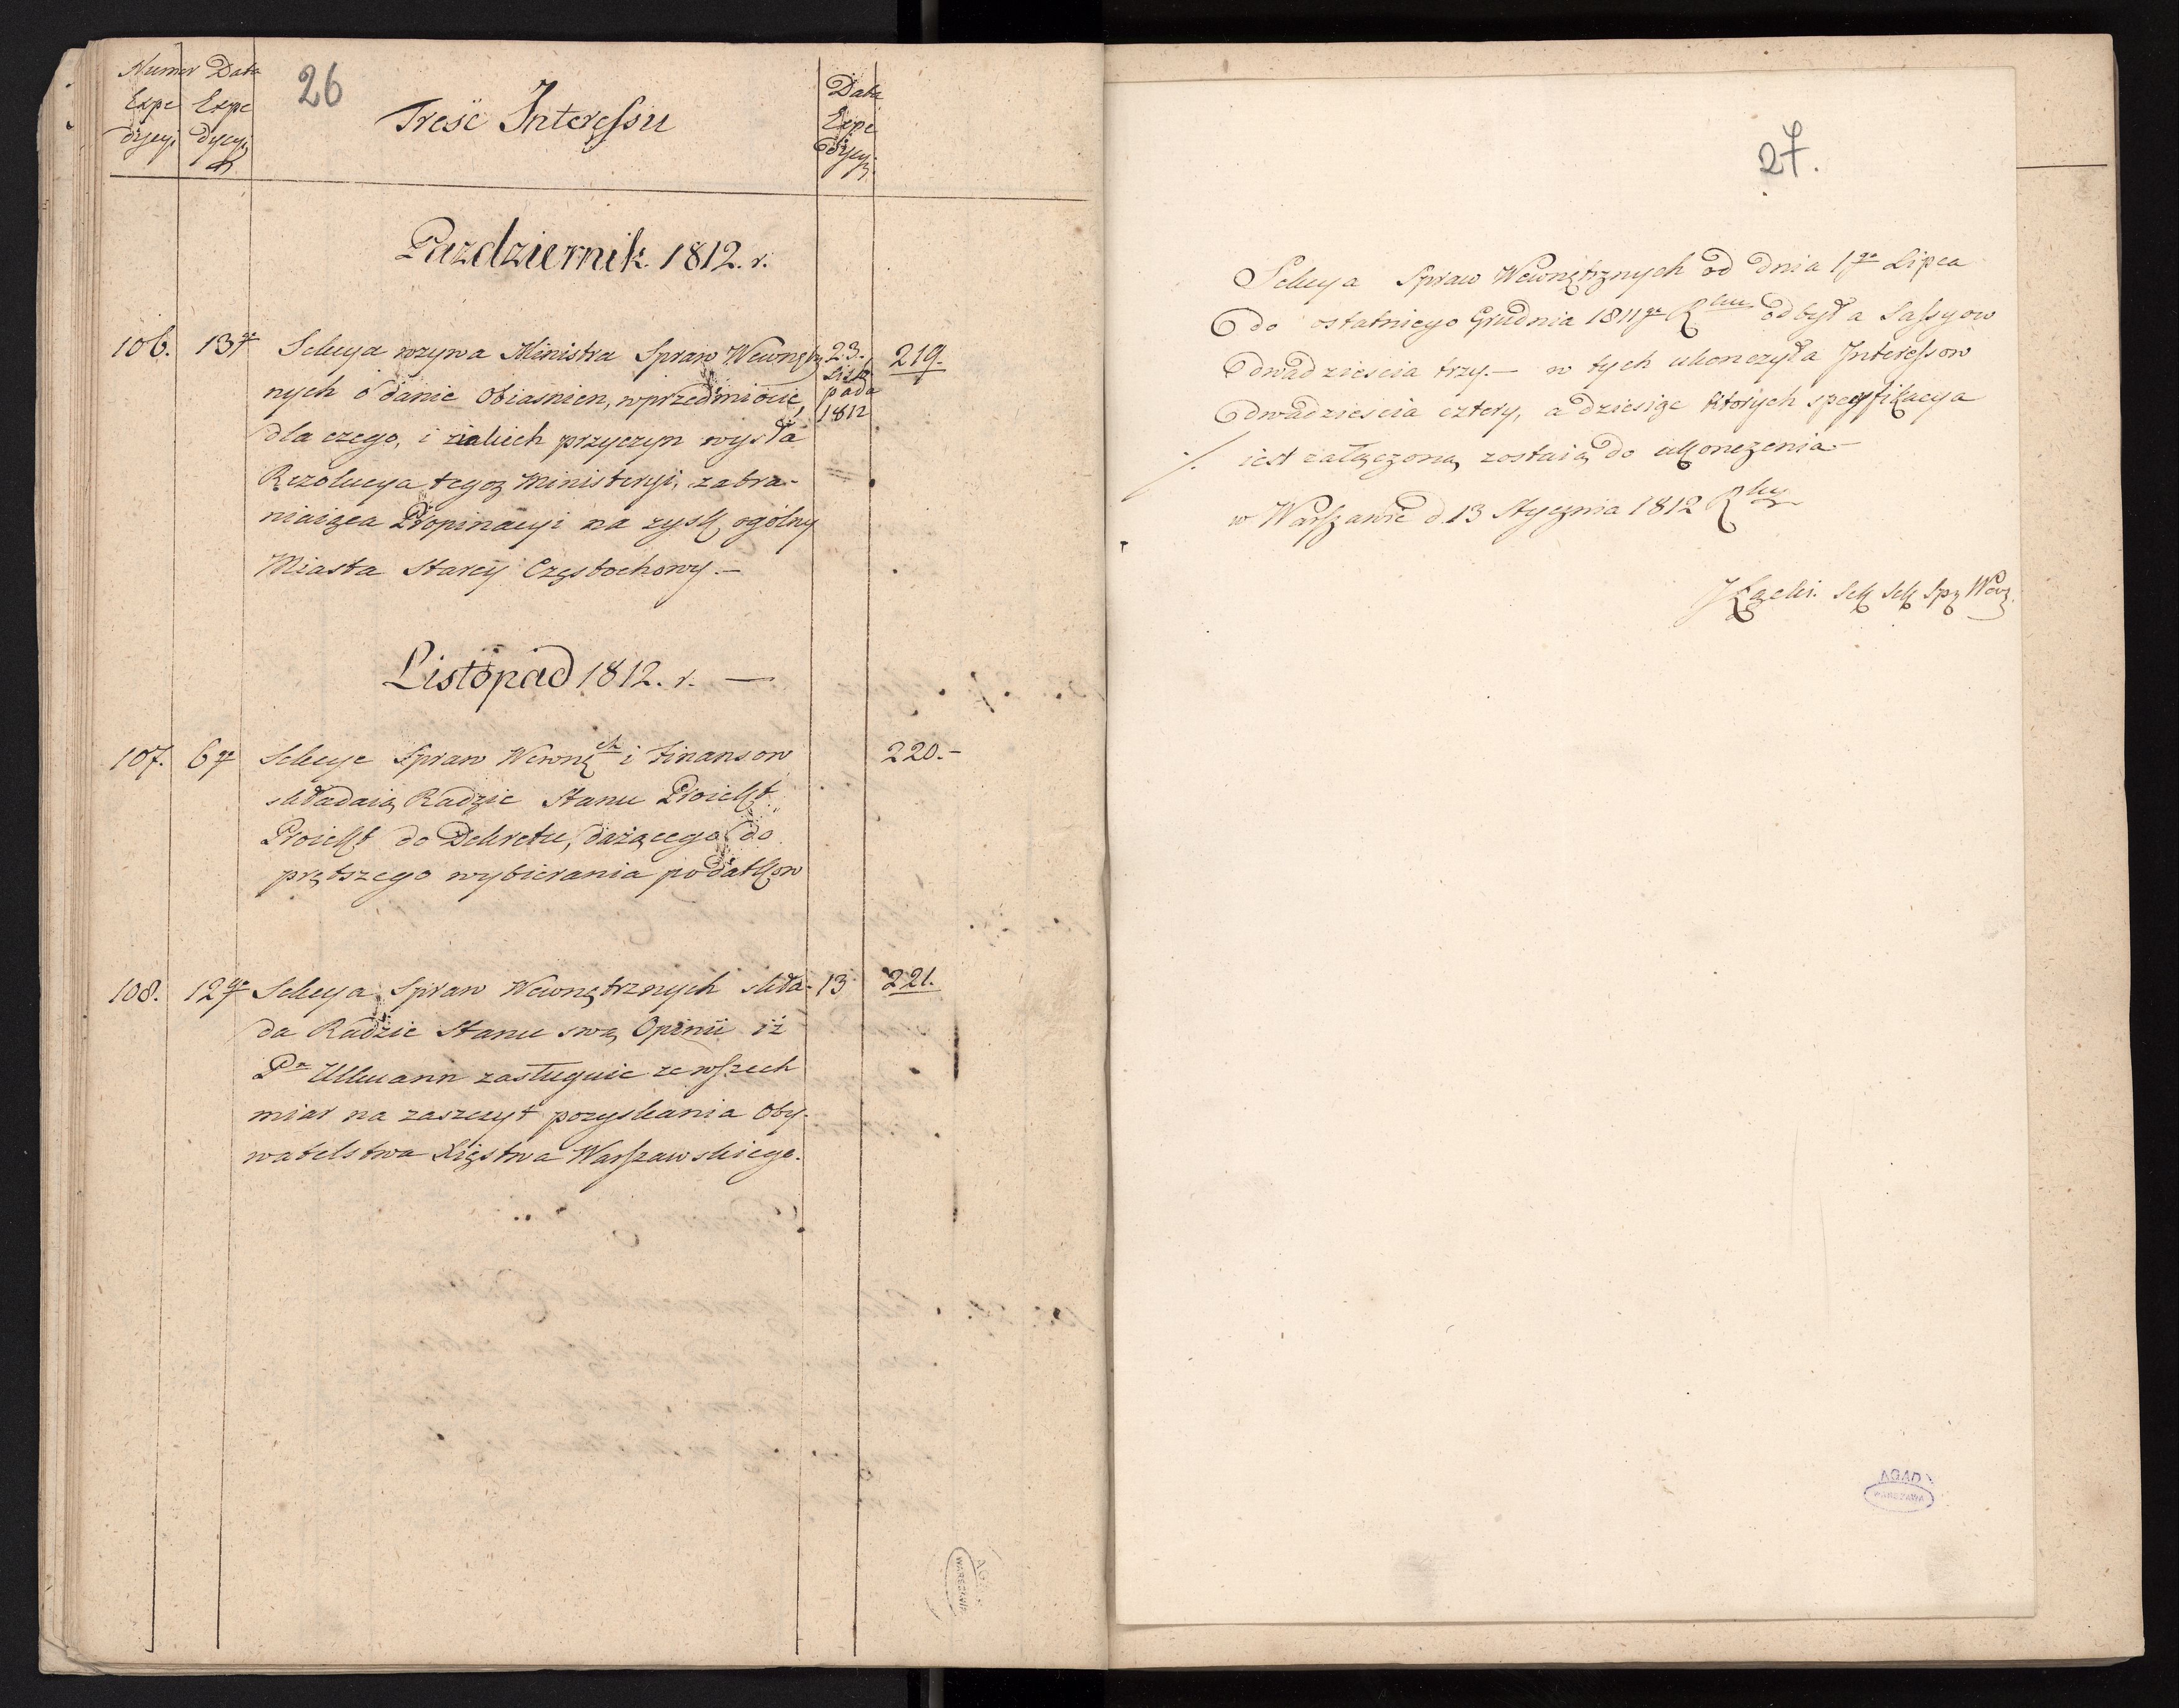 Numer Data
Expe Expe
dycyi dycyi
26
Treść Interessu
Data
Expe
dycyi
Pazdziernik 1812. r.
106. 13go Sekcya wzywa Ministra Spraw Wewnętrz 23. 219.
Listo
nych o danie Obiasnien, w przedmiocie pada
dla czego, i z iakich przyczyn wyszła 1812
Rezolucya tegoz Ministeryi, zabra-
niaiąca Propinacyi na zysk ogolny
Miasta Starey Częstochowy.-
Listopad 1812. r. —
107. 6go Sekcye Spraw Wewnęch i Finansow 220.-
składaią Radzie Stanu Proiekt
Proiekt do Dekretu, dażącego do
prętszego wybierania podatkow
108. 12go Sekcya Spraw Wewnętrznych skła- 13 221.
da Radzie Stanu swą Opinii iż
Pn Ullmann zasługuie ze wszech
miar na zaszczyt pozyskania Oby-
watelstwa Xięstwa Warszawskiego.
AGAD
WARSZAWA
27.
Sekcya Spraw Wewnętrznych od dnia 1go Lipca
do ostatniego Grudnia 1811go Rku odbyła Sassyow
dwadziescia trzy.— w tych ukonczyła Interessow
dwadziescia cztery, a dziesięc ktorych specyfikacya
./. iest załączona, zostaią do ukonczenia-
w Warszawie d. 13 Stycznia 1812 Rku
Sek Sek Spr Wew.
AGAD
WARSZAWA